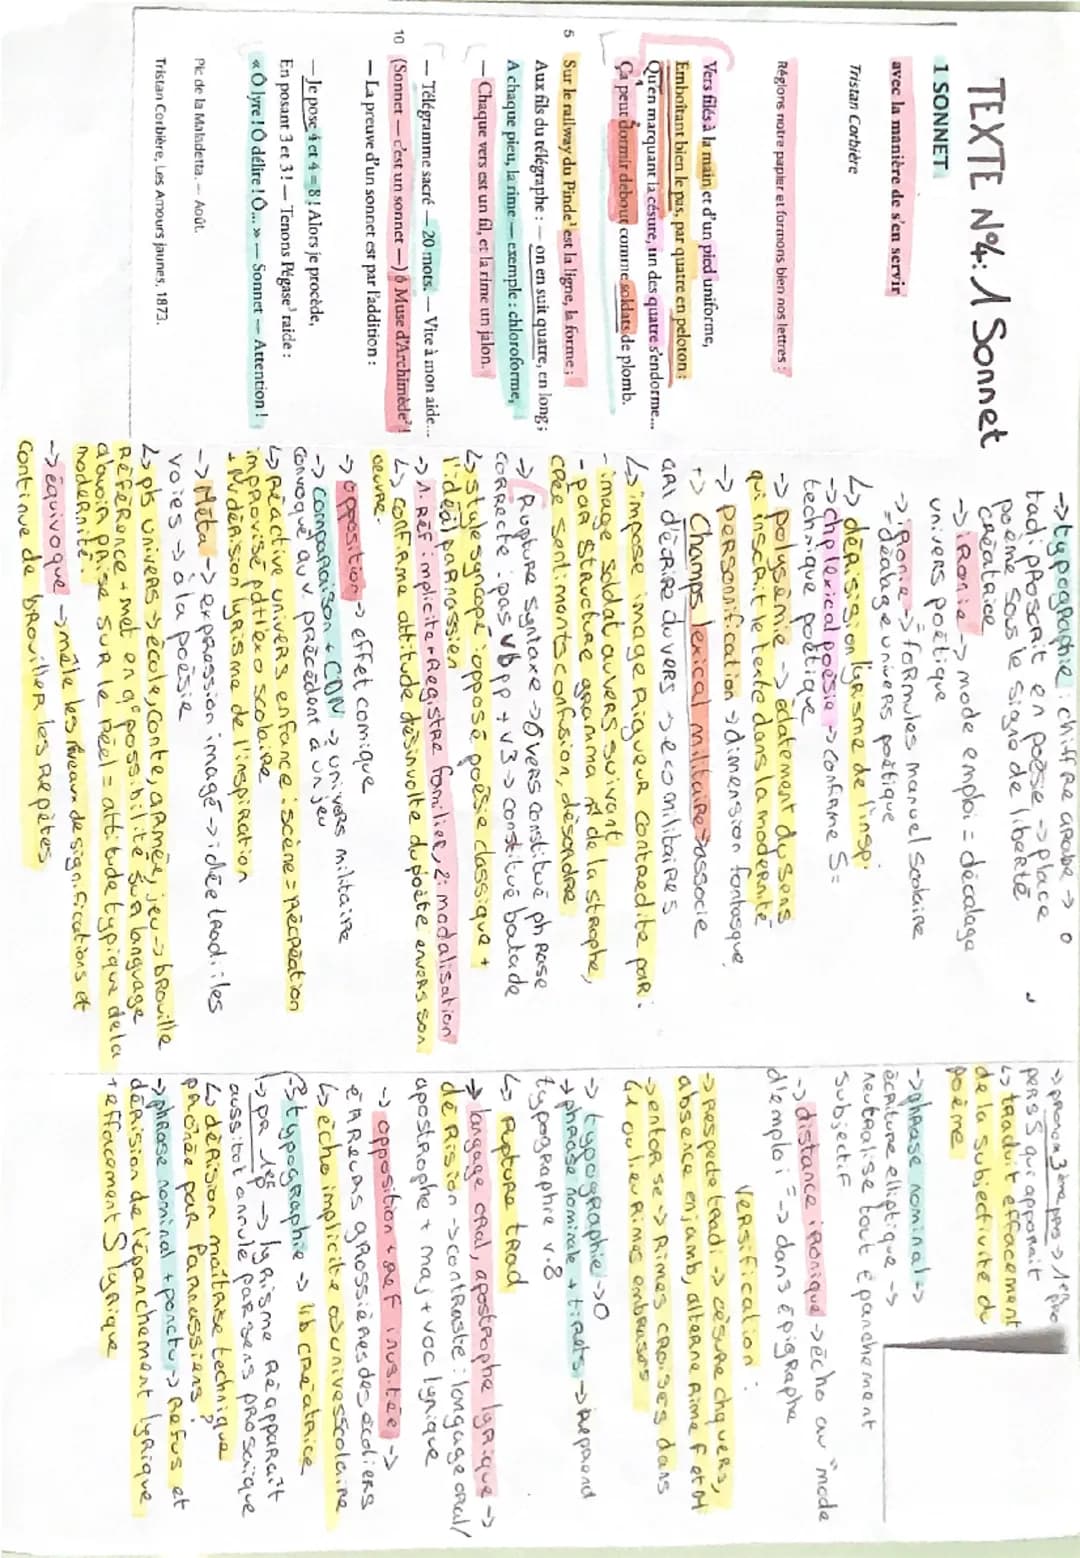 TEXTE N°4: 1 Sonnet
1 SONNET
avec la manière de s'en servir
Tristan Corbière
Réglons notre papier et formons bien nos lettres :
Vers filés à la main et d'un pied uniforme,
Emboîtant bien le pas, par quatre en peloton ;
Qu'en marquant la césure, un des quatre s'endorme...
Ça peut dormir debout comme soldats de plomb.
5 Sur le railway du Pinde¹ est la ligne, la forme ;
Aux fils du télégraphe : — on en suit quatre, en long ;
A chaque pieu, la rime — exemple : chloroforme,
— Chaque vers est un fil, et la rime un jalon.
— Télégramme sacré — 20 mots. — Vite à mon aide...
10 (Sonnet — c'est un sonnet —) ô Muse d'Archimède² !
— La preuve d'un sonnet est par l'addition :
— Je pose 4 et 4 = 8 ! Alors je procède,
En posant 3 et 3 ! — Tenons Pégase³ raide :
« Ô lyre ! Ô délire ! Ô... » — Sonnet — Attention !
Pic de la Maladetta. — Août.
Tristan Corbière, Les Amours jaunes, 1873.
-> typographie : chiffre arabe -> 0
tradi proscrit en poésie -> place
poème sous le signe de liberté
créatrice
-> ironie -> mode emploi = décalage
univers poétique
-> ironie -> formules manuel scolaire
= décalage univers poétique
↳ dérision lyrisme de l'insp.
-> chp lexical poésie -> confirme S =
technique poétique
-> polysémie -> éclatement du sens
qui inscrit le texte dans la modernité
-> personnification -> dimension fantasque
-> Champs lexical militaire -> associe
art d'écrire du vers -> eco militaires
↳ impose image rigueur contredite par :
- image soldat ouvers suivant
- par structure gramma de la strophe,
crée sentiments confusion, désordre
-> Rupture syntaxe -> 6 vers constitué phrase
correcte : pas vb pp + v3 -> constitué balade
↳ style syncopé : opposé poésie classique +
l'idéal parnassien
-> 1: réf implicite + registre familier, 2: modalisation
↳ confirme attitude désinvolte du poète envers son
oeuvre.
-> opposition -> effet comique
-> comparaison + CDN -> univers militaire
convoqué au v précédent à un jeu
↳ réactive univers enfance : scène = récréation
improvisé pdt l'exo scolaire
↳ Ndérision lyrisme de l'inspiration
-> Méta -> expression imagé -> idée tradi iles
voies -> à la poésie
↳ pls univers -> école, conte, armée, jeu -> brouille
référence + met en q° possibilité su à language
d'avoir prise sur le réel = attitude typique de la
modernité
-> équivoque -> mêle les niveaux de significations et
continue de brouiller les repètes
-> pronom 3ème pers -> 1ère
pers S qui apparaît
↳ traduit effacement
de la subjectivité du
poème
-> phrase nominal ->
écriture elliptique ->
neutralise tout épanchement
subjectif
-> distance ironique -> écho au "mode
d'emploi" -> dans épigraphe
versification :
-> respecte tradi -> césure chq vers,
absence enjamb, alterne rime f et M
-> entorse -> rimes croisés dans
4 au lieu rimes embrassés
-> typographie -> 0
-> phrase nominale + tirets -> reprend
typographie v.8
↳ rupture trad
-> langage oral, apostrophe lyrique ->
dérision -> contraste : langage oral/
apostrophe + maj + voc lyrique
-> opposition + réf inusitée ->
erreurs grossières des écoliers
↳ écho implicite à univers scolaire
-> typographie -> lib créatrice
-> pr 1èp -> lyrisme réapparaît
aussitôt annulé par sens prosaïque
↳ dérision maîtrise technique
prônée par Parnassiens ?
-> phrase nominal + ponctu -> Refus et
dérision de l'épanchement lyrique
+ effacement S lyrique